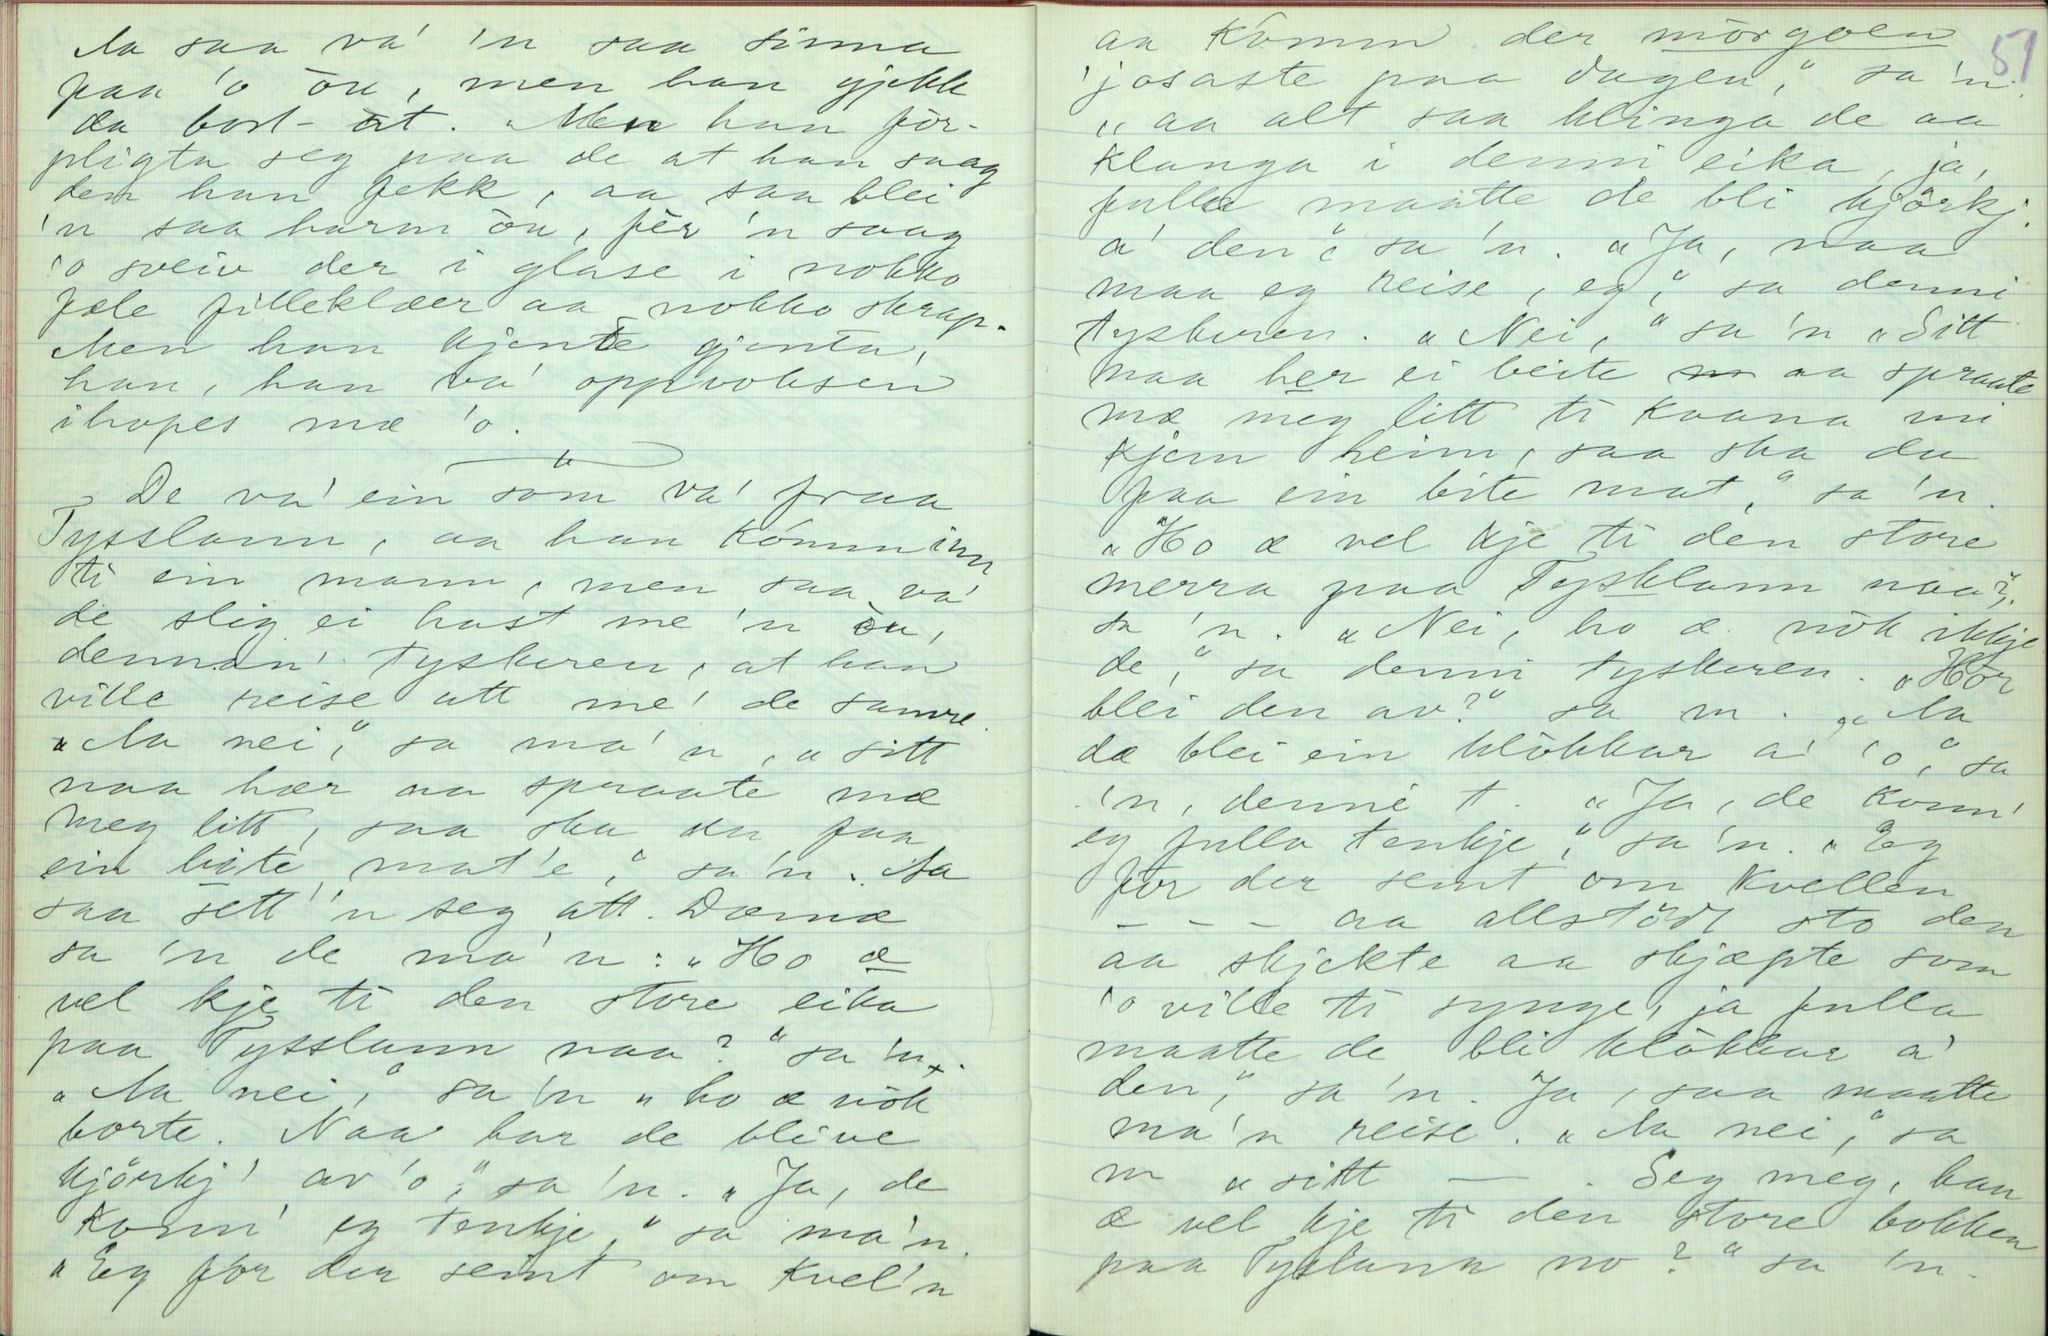 Aa saa va' 'n saa sinna
paa 'o òu, men han gjekk
da bort-åt. Men han for-
pligta seg paa de at han saag
den han fekk, aa saa blei
'n saa harm òu, fèr 'n saag
'o sveiv der i glase i nokko
fæle filleklæer aa nokko skrap.
Men han kjente gjenta,
han, han va' oppvoksen
ihopes mæ 'o.
De va' ein som va' fraa
Tysslann, aa han komm inn
ti ein mann, men saa va'
de slig ei hast me 'n òu,
dennan' tyskeren, at han
ville reise att me' de samre.
„Aa nei," sa ma'n, „sitt
naa hær aa spraate mæ
meg litt, saa ska du faa
ein bite mat'e," sa 'n. Aa
saa sett 'n seg att. Dæmæ
sa 'n de ma'n: „Ho æ
vel kje ti den store eika
paa Tysslann naa?" sa 'n.
„Aa nei," sa 'n „ho æ nòk
borte. Naa har de blive
kjörkj' av 'o," sa 'n. „Ja, de
konn' eg tenkje," sa ma'n.
„Eg for der seint om kvel'n
51
aa komm der morgoen
'josaste paa dagen," sa 'n.
„aa alt saa klinga de aa
klanga i denni eika, ja,
fulla maatte de bli kjörkj.
a' den" sa 'n. „Ja, naa
maa eg reise, eg," sa denni
tyskeren. „Nei," sa 'n „Sitt
naa her ei beite aa spraate
mæ meg litt ti kaana mi
kjem heim, saa ska du
faa ein bite mat," sa 'n.
„Ho æ vel kje ti den store
merra paa Tysklann naa?",
sa 'n. „Nei, ho æ nòk ikkje
de," sa denni tyskeren. „Hòr
blei den av?" sa 'n. „Aa
dæ blei ein klòkkar a' 'o," sa
'n, denne t. „Ja, de konn'
eg fulla tenkje," sa 'n. „Eg
fòr der seint om kvellen
– – – aa allstödt sto den
aa skjekte aa skjæpte som
'o ville ti synge, ja fulla
maatte de bli klòkkar a'
den," sa 'n. Ja, saa maatte
ma'n reise. „Aa nei," sa
'n „sitt — . Seg meg, han
æ vel kje ti den store bokken
paa Tyslann no?" sa 'n.